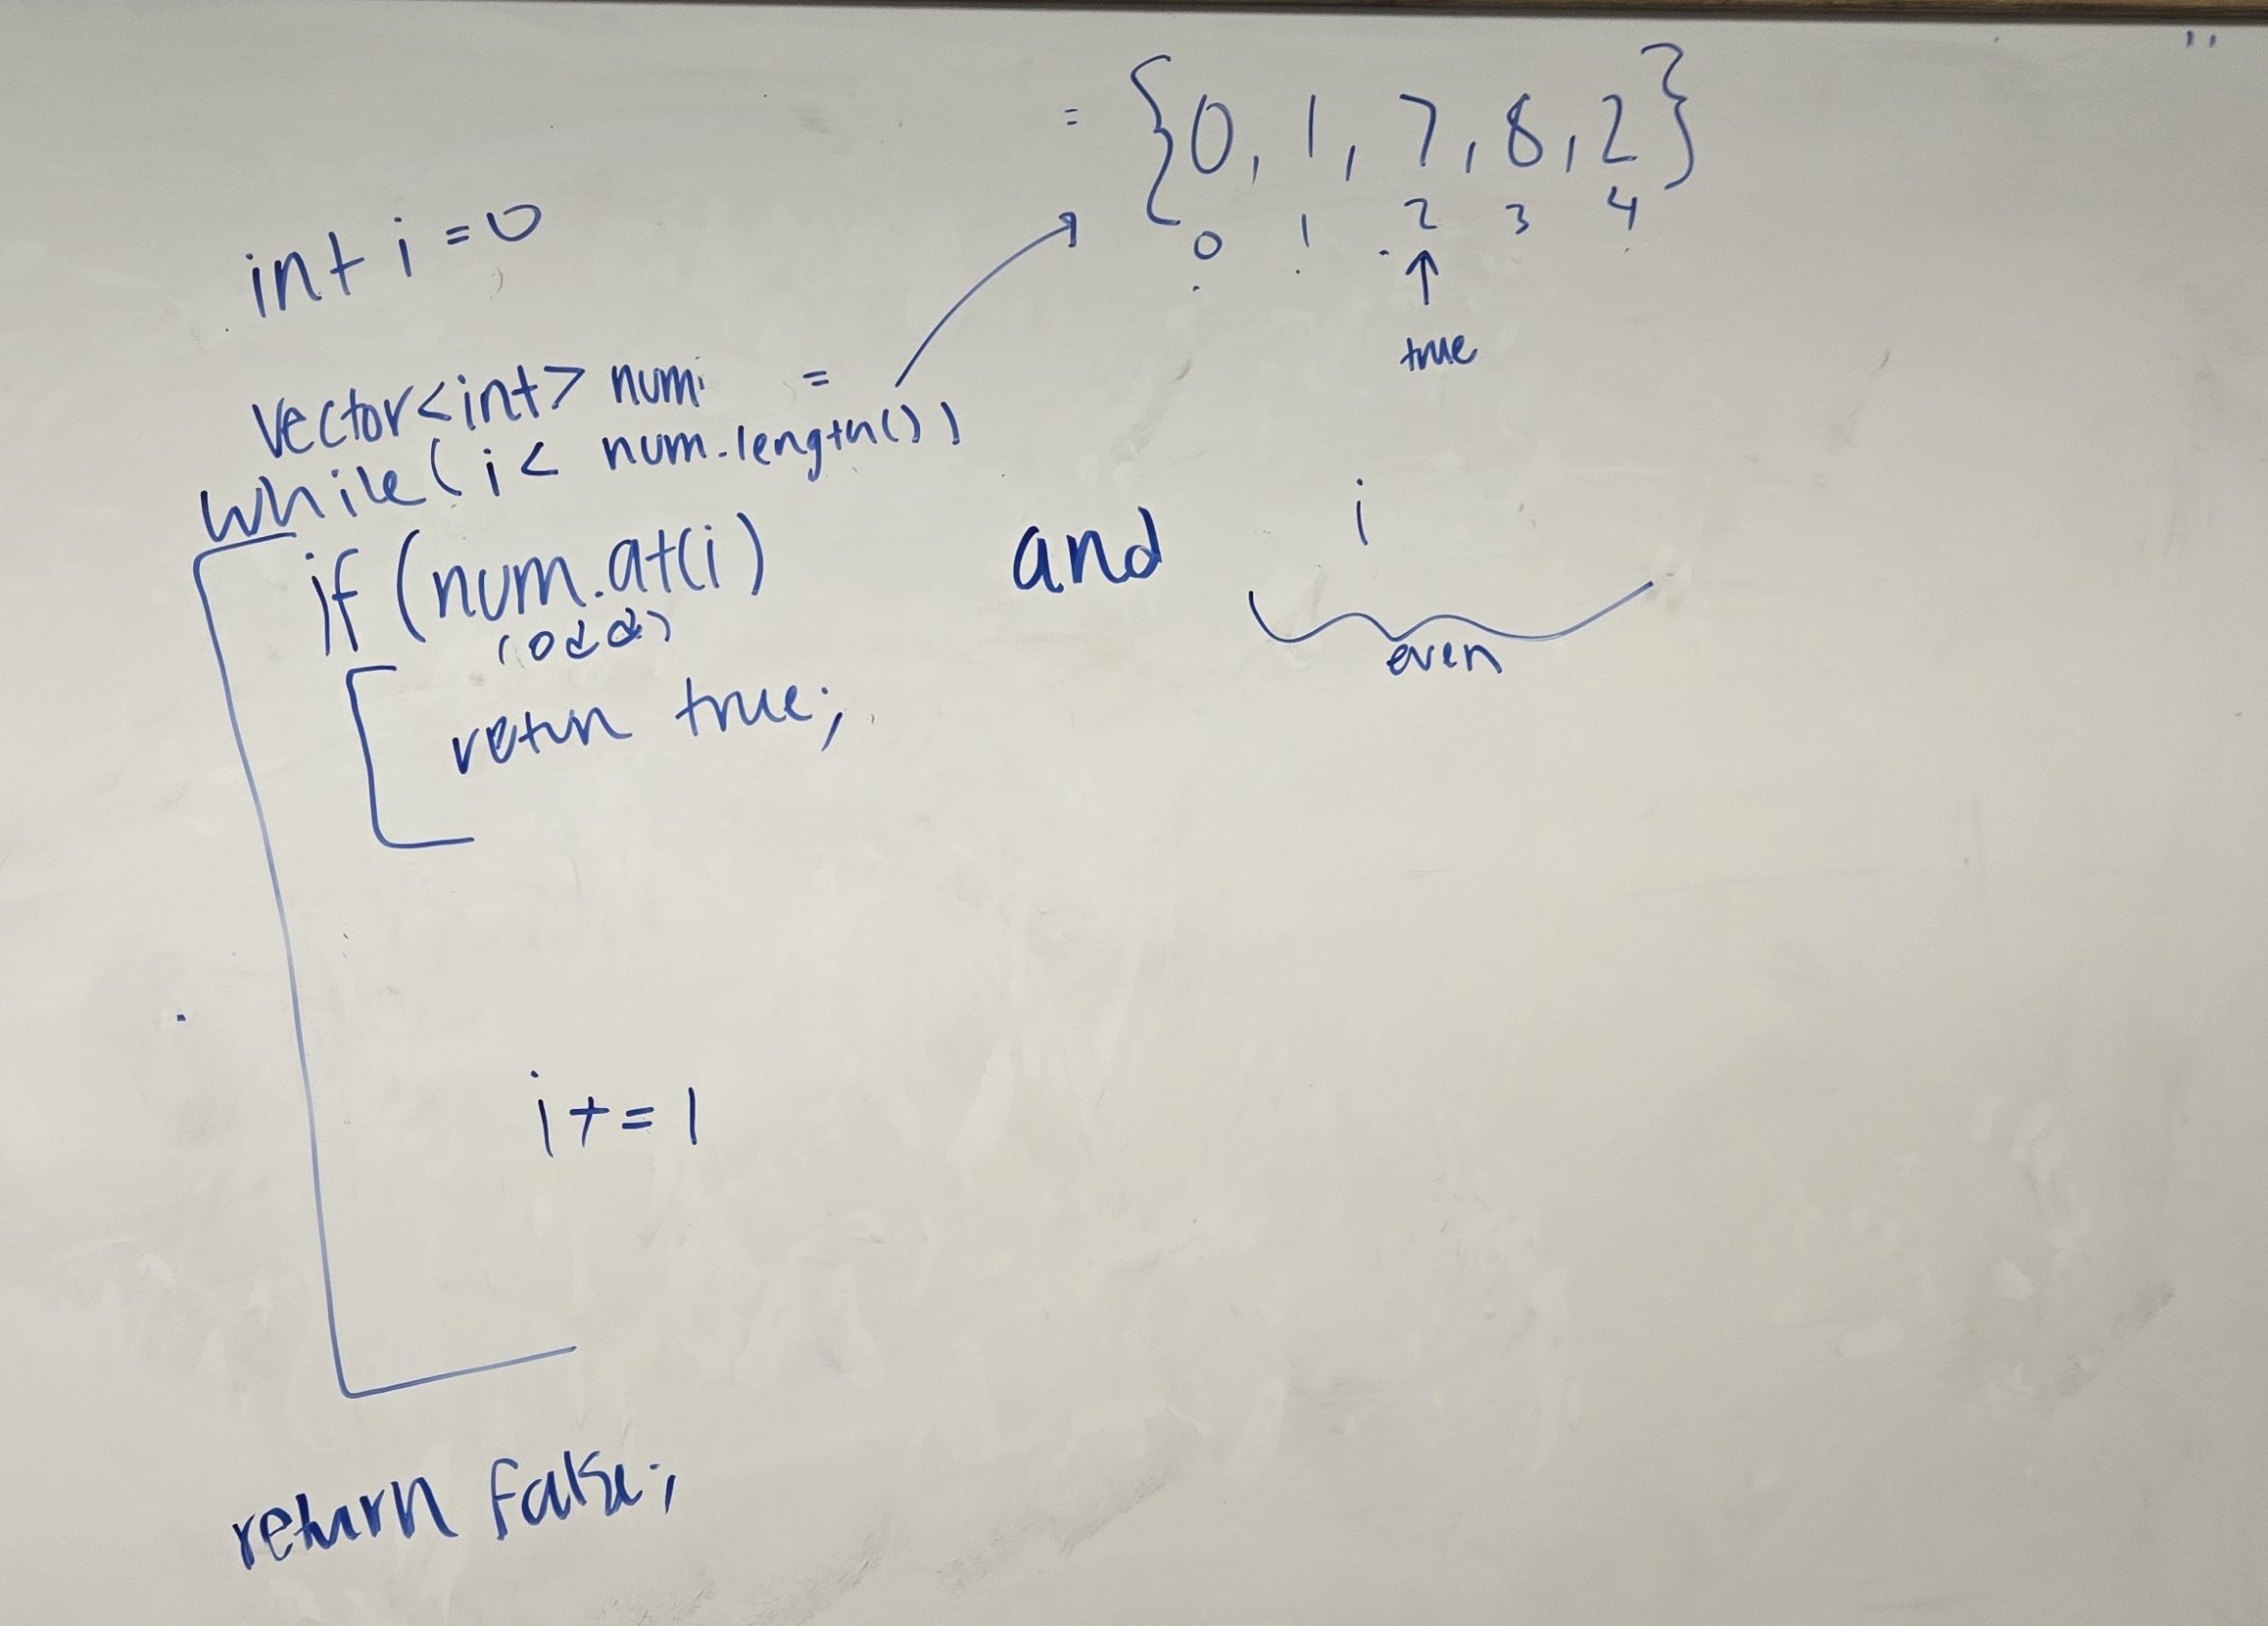 = {0, 1, 7, 8, 2}
0 1 2 3 4
↑
true
int i = 0
vector<int> num =
while (i < num.length())
if (num.at(i) and i
(odd) even
return true;
i += 1
return false;